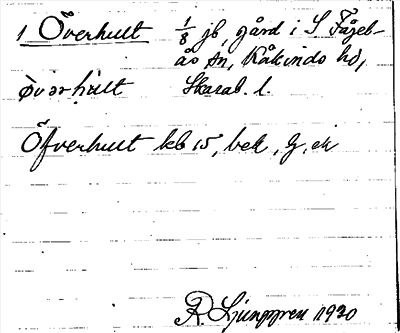 1 Överhult 1/8 jb, gård i S Fågel-
ås sn, Kåkinds hd,
övərhult Skarab. l.
Öfverhult kb 15, bek, G. ek
R. Ljunggren 1920